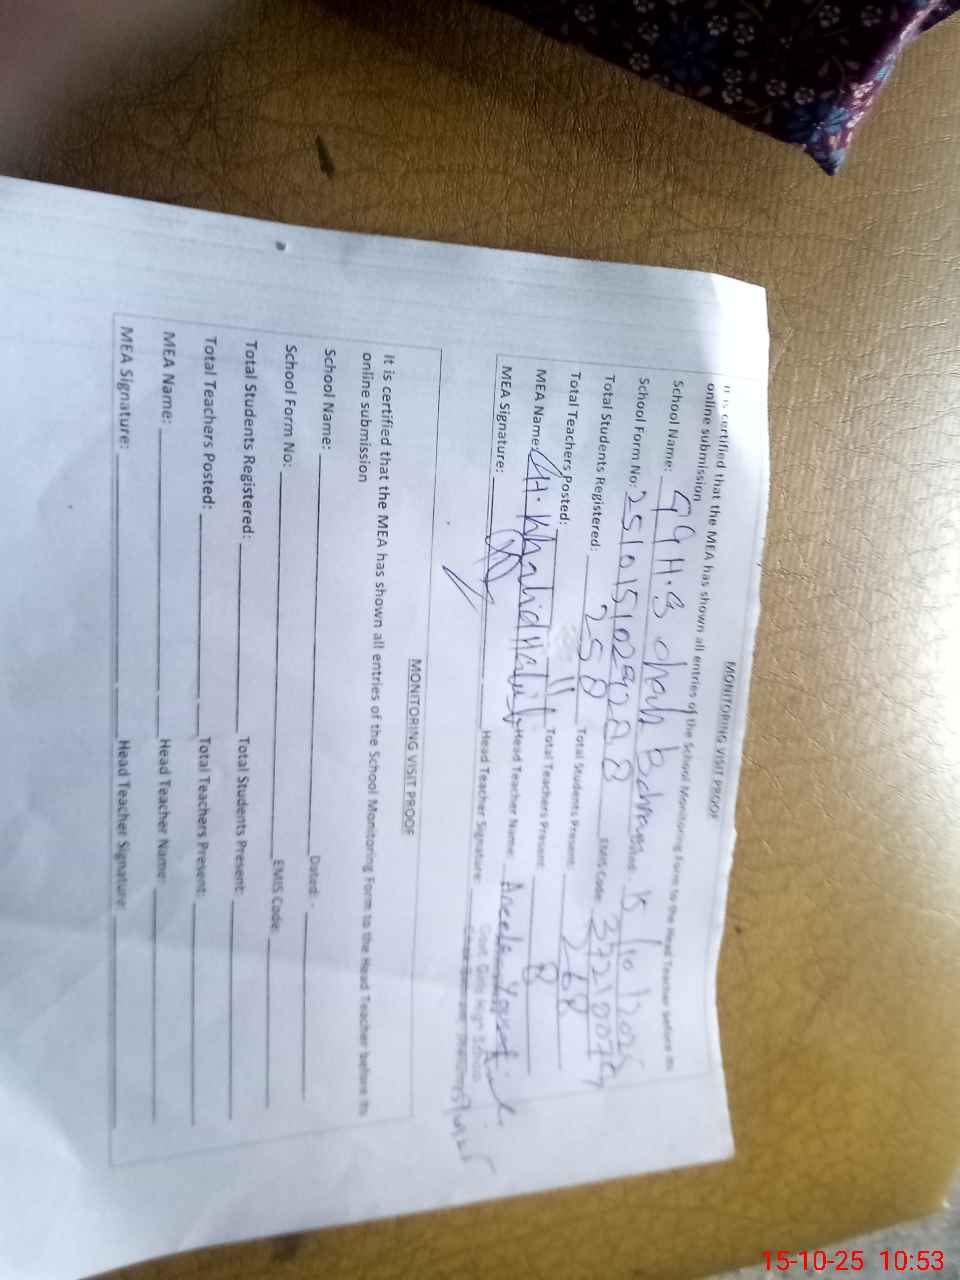 MONITORING VISIT PROOF
It is certified that the MEA has shown all entries of the School Monitoring Form to the Head Teacher before its
online submission
School Name: GGH.S chak
School Form No: EMIS Code:
Total Students Registered: 258 Total Students Present: 268
Total Teachers Posted: 11 Total Teachers Present: 8
MEA Name: CH. Khalid Habib Head Teacher Name:
MEA Signature: Head Teacher Signature:
Govt. Girls High School
MONITORING VISIT PROOF
It is certified that the MEA has shown all entries of the School Monitoring Form to the Head Teacher before its
online submission
School Name: Dated:
School Form No: EMIS Code:
Total Students Registered: Total Students Present:
Total Teachers Posted: Total Teachers Present:
MEA Name: Head Teacher Name:
MEA Signature: Head Teacher Signature:
15-10-25 10:53